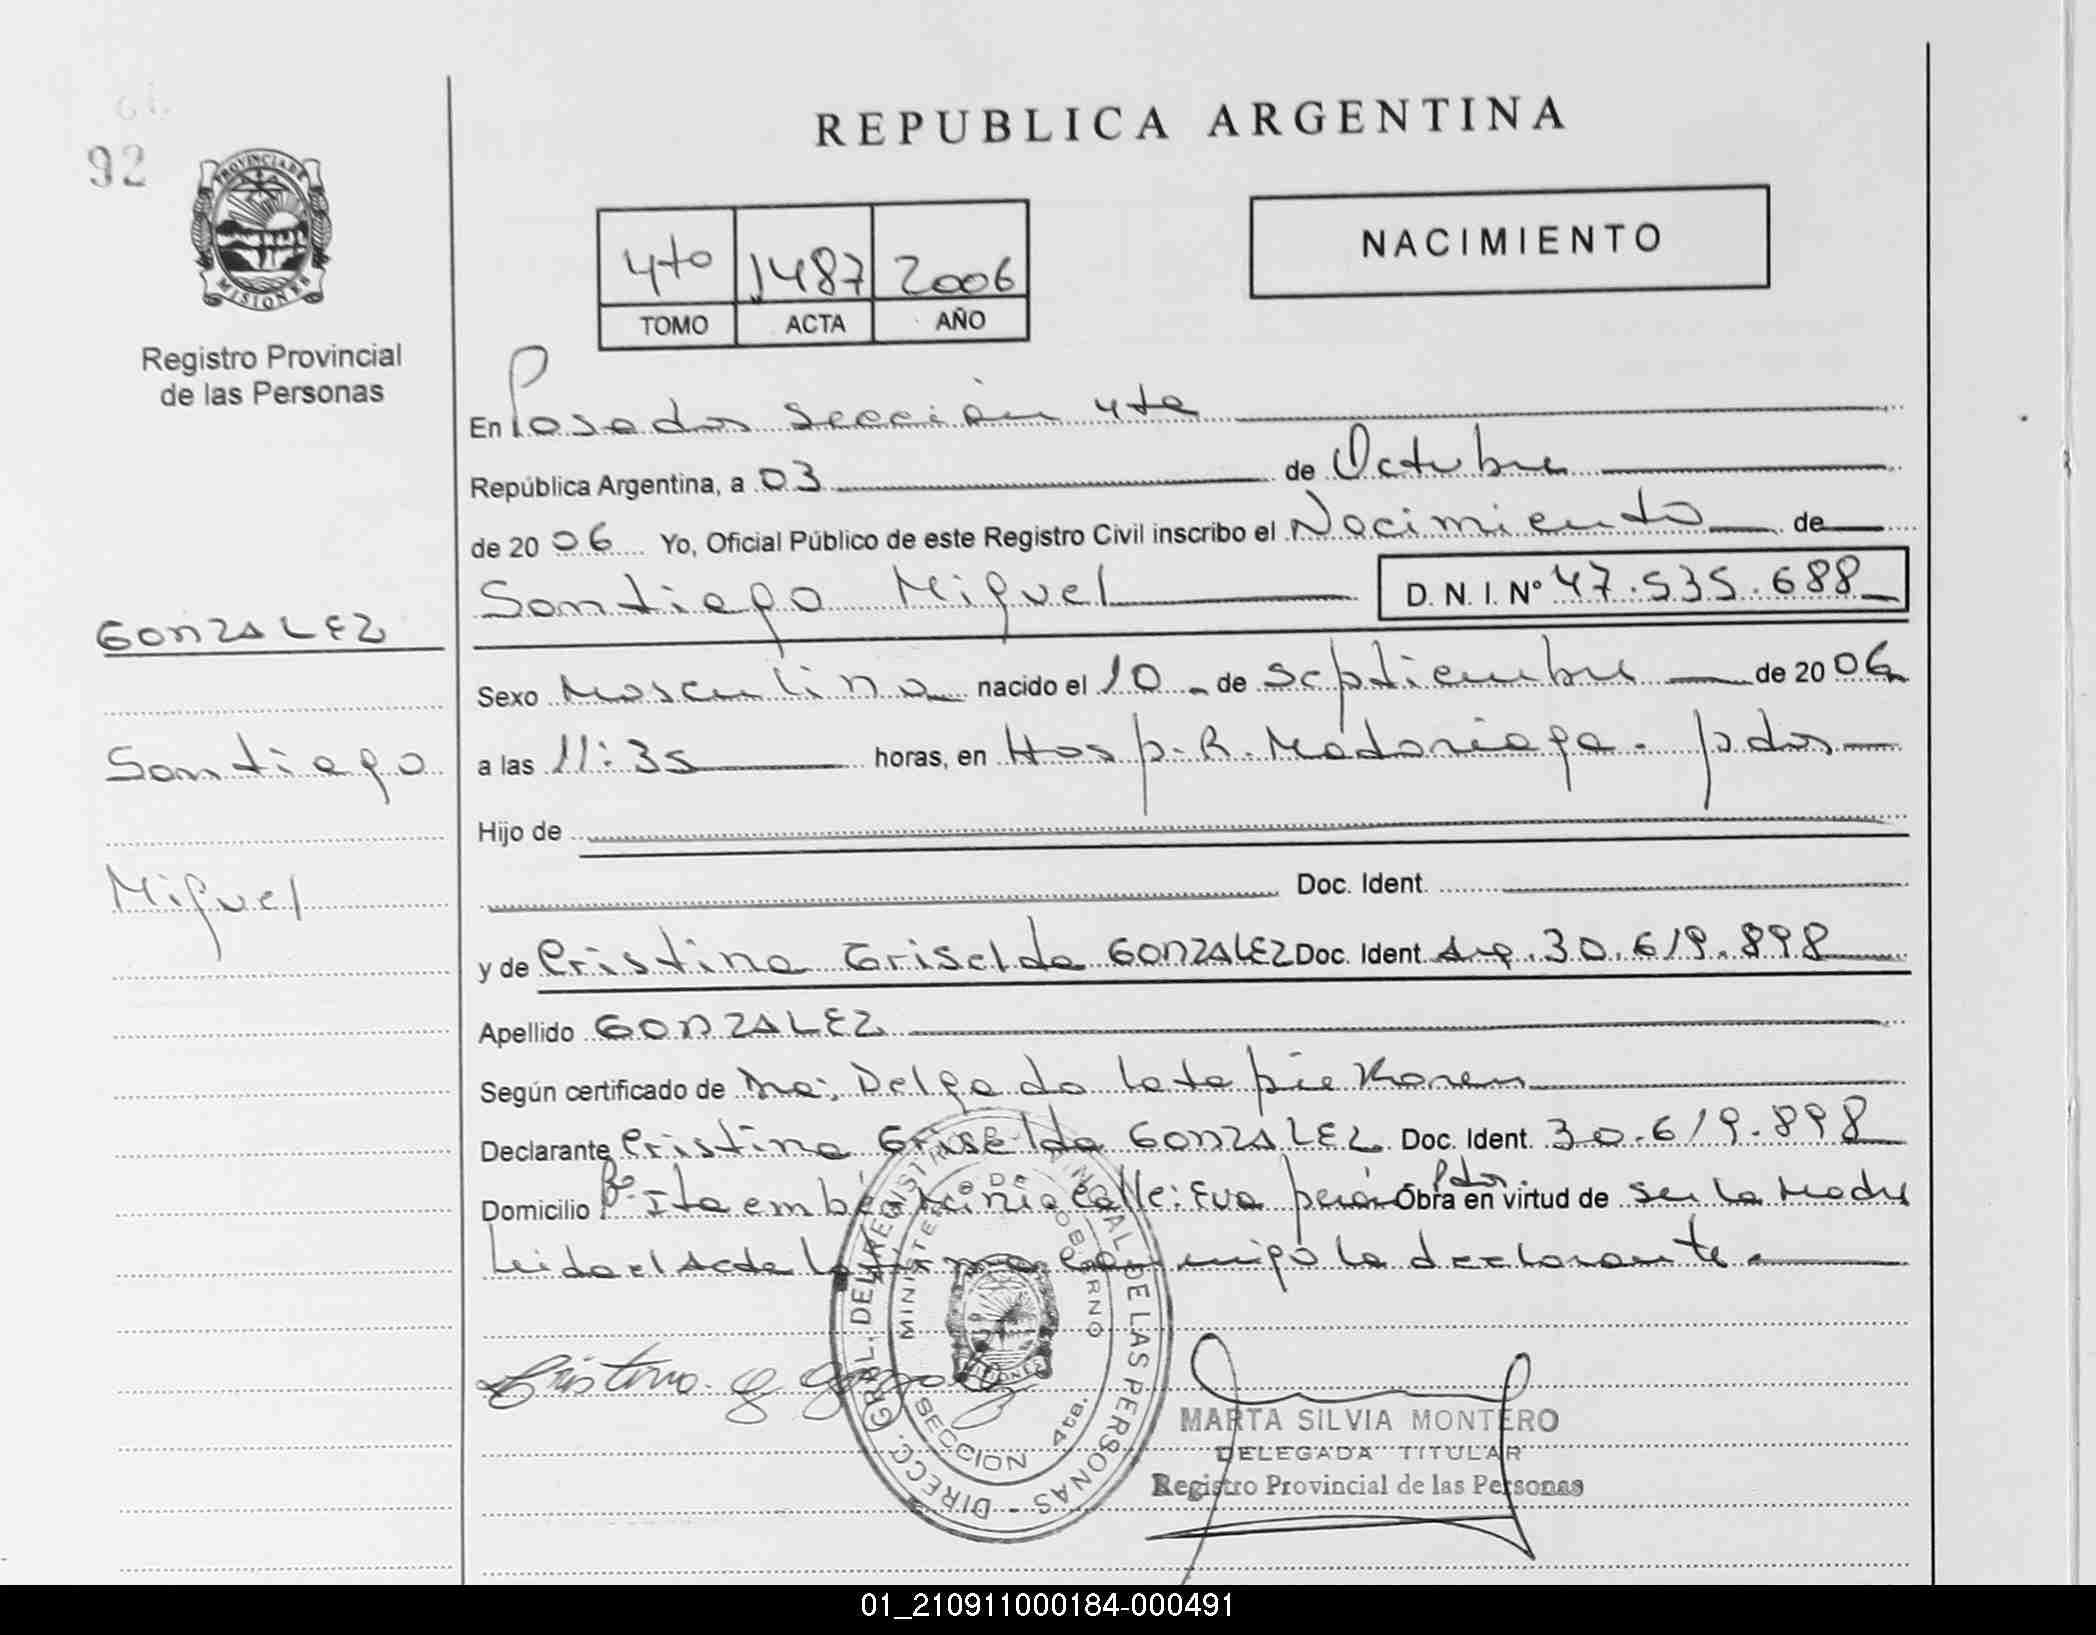 92
PROVINCIA DE
MISIONES
Registro Provincial
de las Personas
REPUBLICA ARGENTINA
4to 1487 2006
TOMO ACTA AÑO
NACIMIENTO
En Posadas Sección 4ta
República Argentina, a 03 de Octubre
de 2006 Yo, Oficial Público de este Registro Civil inscribo el Nacimiento de
Santiago Miguel D.N.I. Nº 47.535.688
GONZALEZ
Santiago
Miguel
Sexo Masculino nacido el 10 de Septiembre de 2006
a las 11:35 horas, en Hosp. R. Madariaga. pdas
Hijo de
Doc. Ident.
y de Cristina Griselda GONZALEZ Doc. Ident. Arg. 30.619.898
Apellido GONZALEZ
Según certificado de Dra: Delgado Karen
Declarante Cristina Griselda GONZALEZ Doc. Ident. 30.619.898
Domicilio Bº Ita embé Mini calle: Eva perón Pdas. Obra en virtud de ser la Madre
Leida el Acta la firma conmigo la declarante
Cristina G Gonzalez
DIRECC. GRAL. DEL REGISTRO PROVINCIAL DE LAS PERSONAS -
MINISTERIO DE GOBIERNO
SECCION 4ta.
MARTA SILVIA MONTERO
DELEGADA TITULAR
Registro Provincial de las Personas
01_210911000184-000491